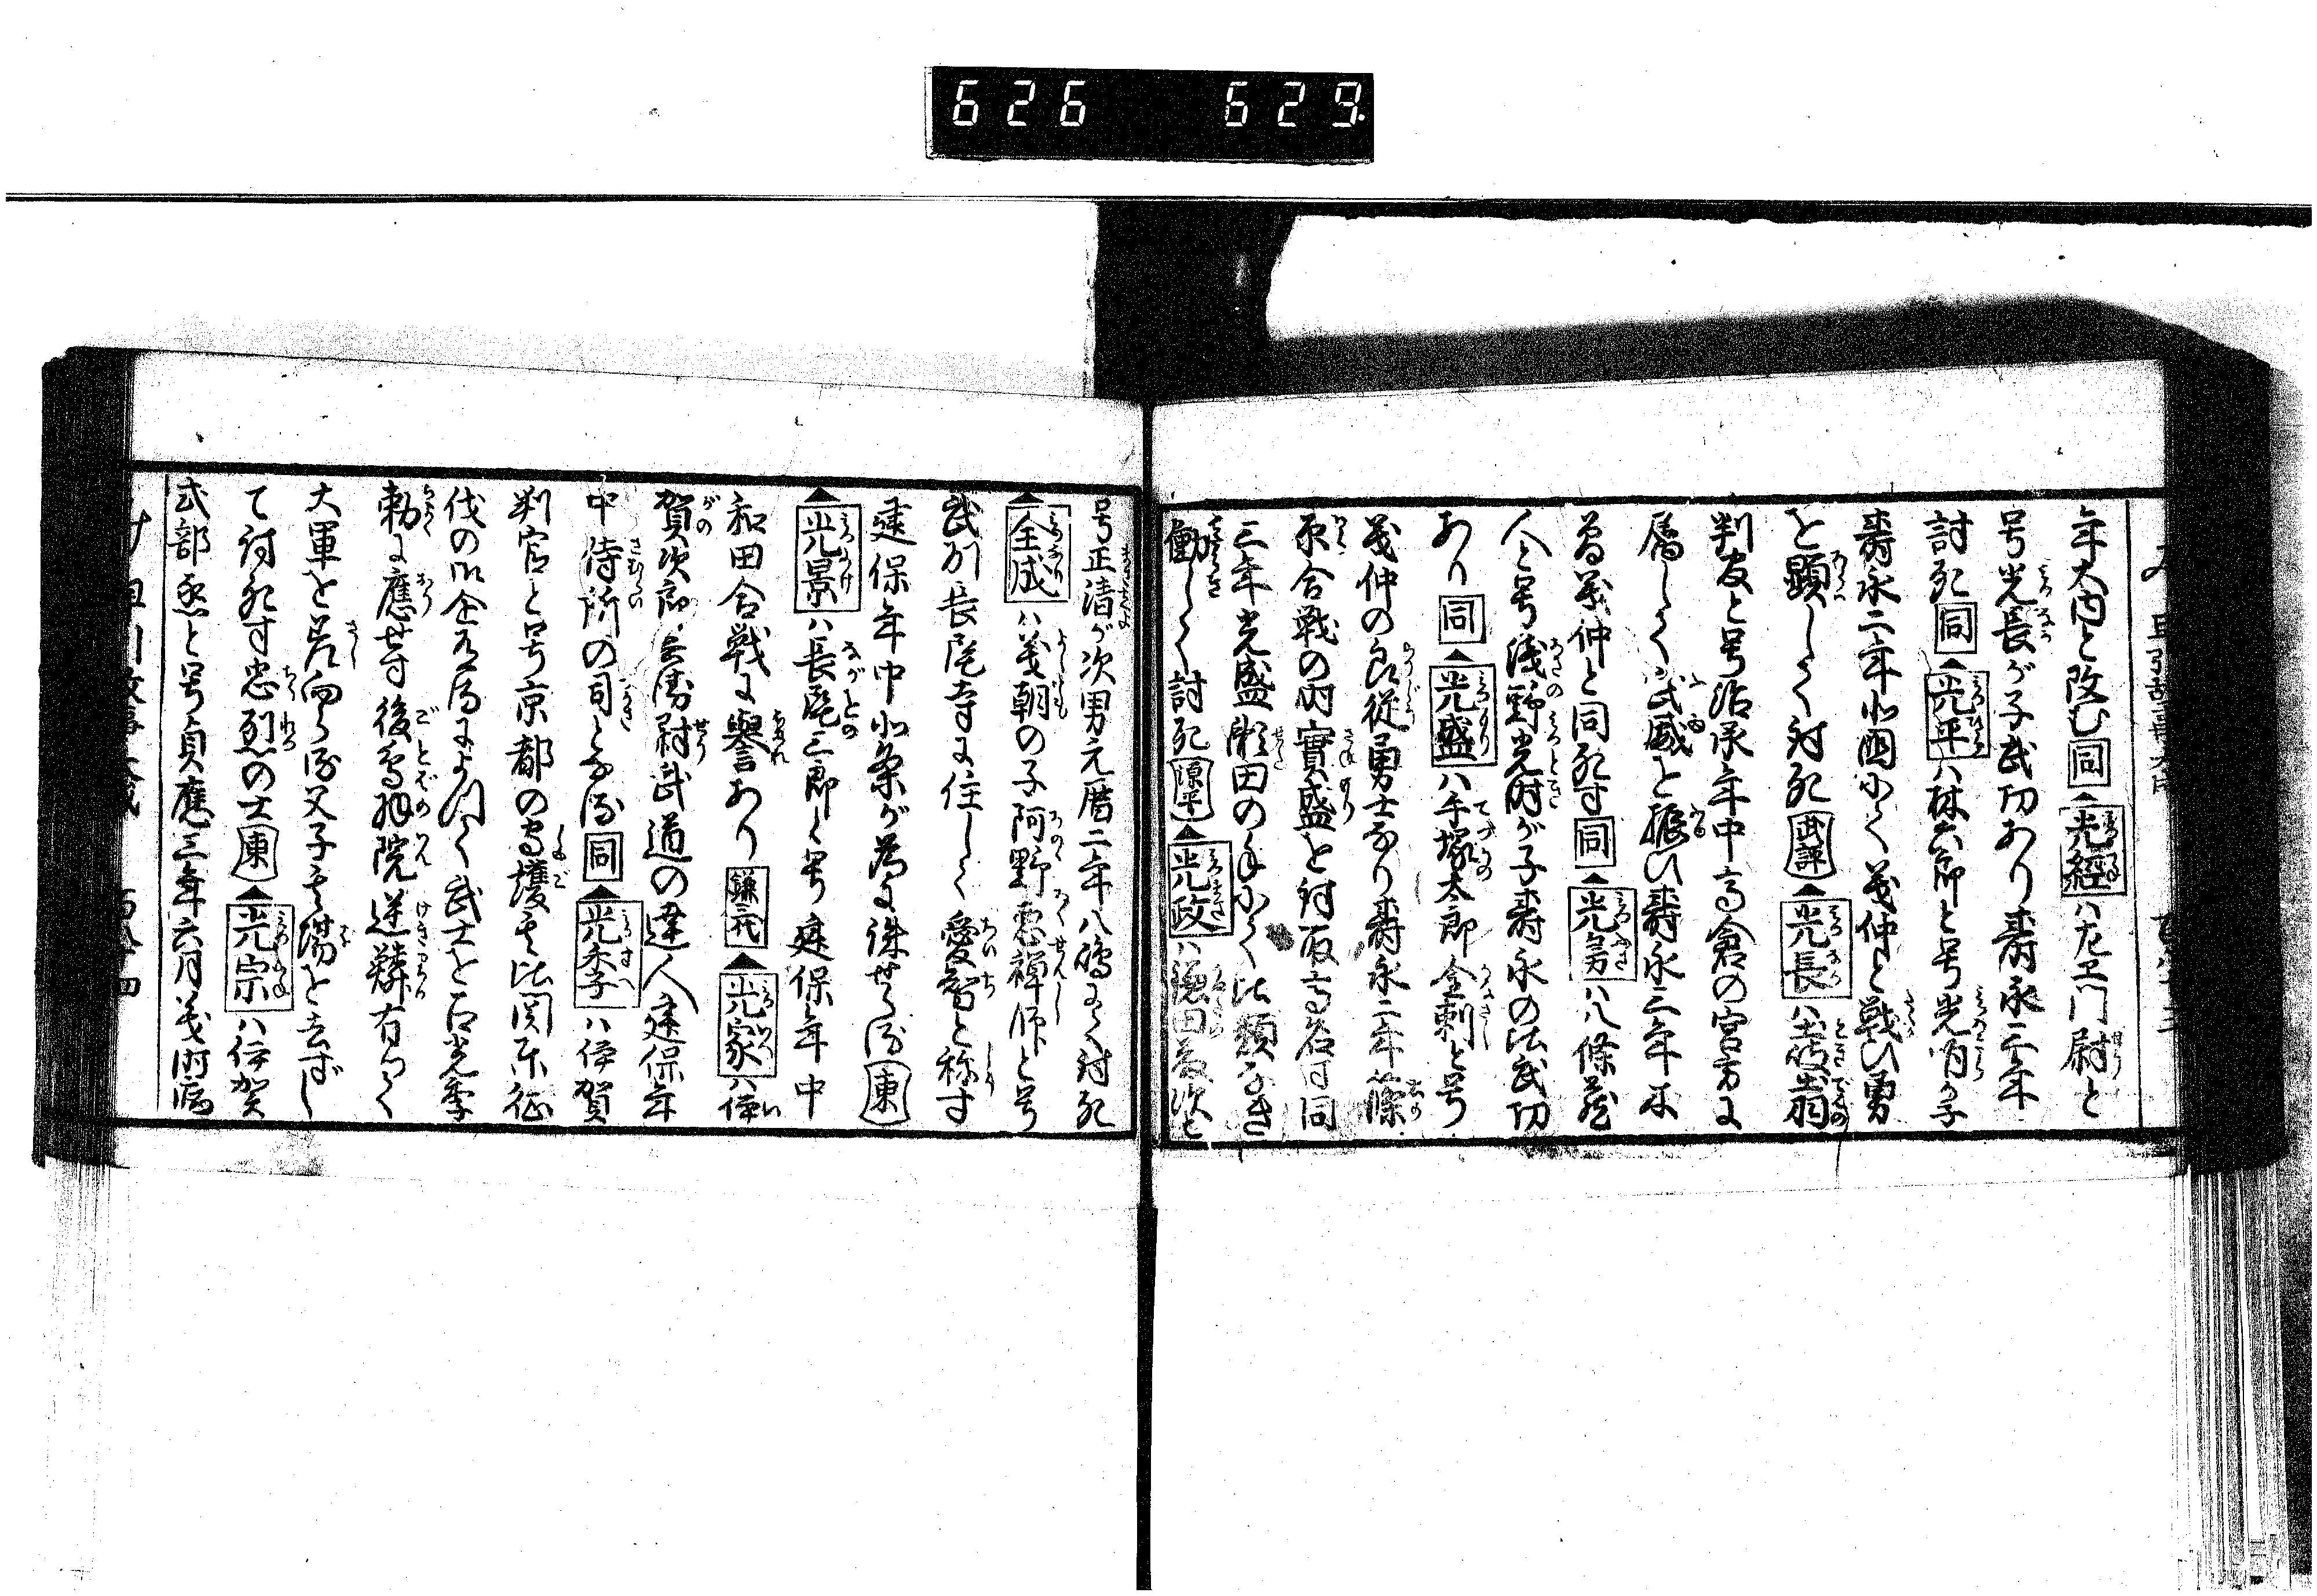 626 629
年大内と改む同▲光經ハ左エ門尉と
号光長が子武功あり壽永三年
討死同▲光平ハ林六郎と号光明が子
壽永二年北国にて義仲と戦ひ勇
を顕して討死武評▲光長ハ土岐出羽
判官と号治承年中高倉の宮方に
属して武威を振ひ壽永二年木
曽義仲と同死す同▲光房ハ八條蔵
人と号浅野光時が子壽永の比武功
あり同▲光盛ハ手塚太郎金刺と号
義仲の良従勇士なり壽永二年篠
原合戦の時實盛を討取高名す同
三年光盛瀬田の手にて比類なき
働して討死源平▲光政ハ
号正清が次男元暦二年八嶋にて討死
▲全成ハ義朝の子阿野悪禅師と号
武州長尾寺に住して愛智と称す
建保年中北条が為に誅せらる東
▲光景ハ長尾三郎と号建保年中
和田合戦に誉あり鎌代▲光家ハ伊
賀次郎兵衛尉武道の達人建保年
中侍所の司となる同▲光季ハ伊賀
判官と号京都の守護also此関東征
伐の御企有るによつて武士を召光季
勅に應せず後鳥羽院逆鱗有つて
大軍を差向らる父子其場を去ずし
て討死す忠烈の士東▲光宗ハ伊賀
式部丞と号貞應三年六月義時病